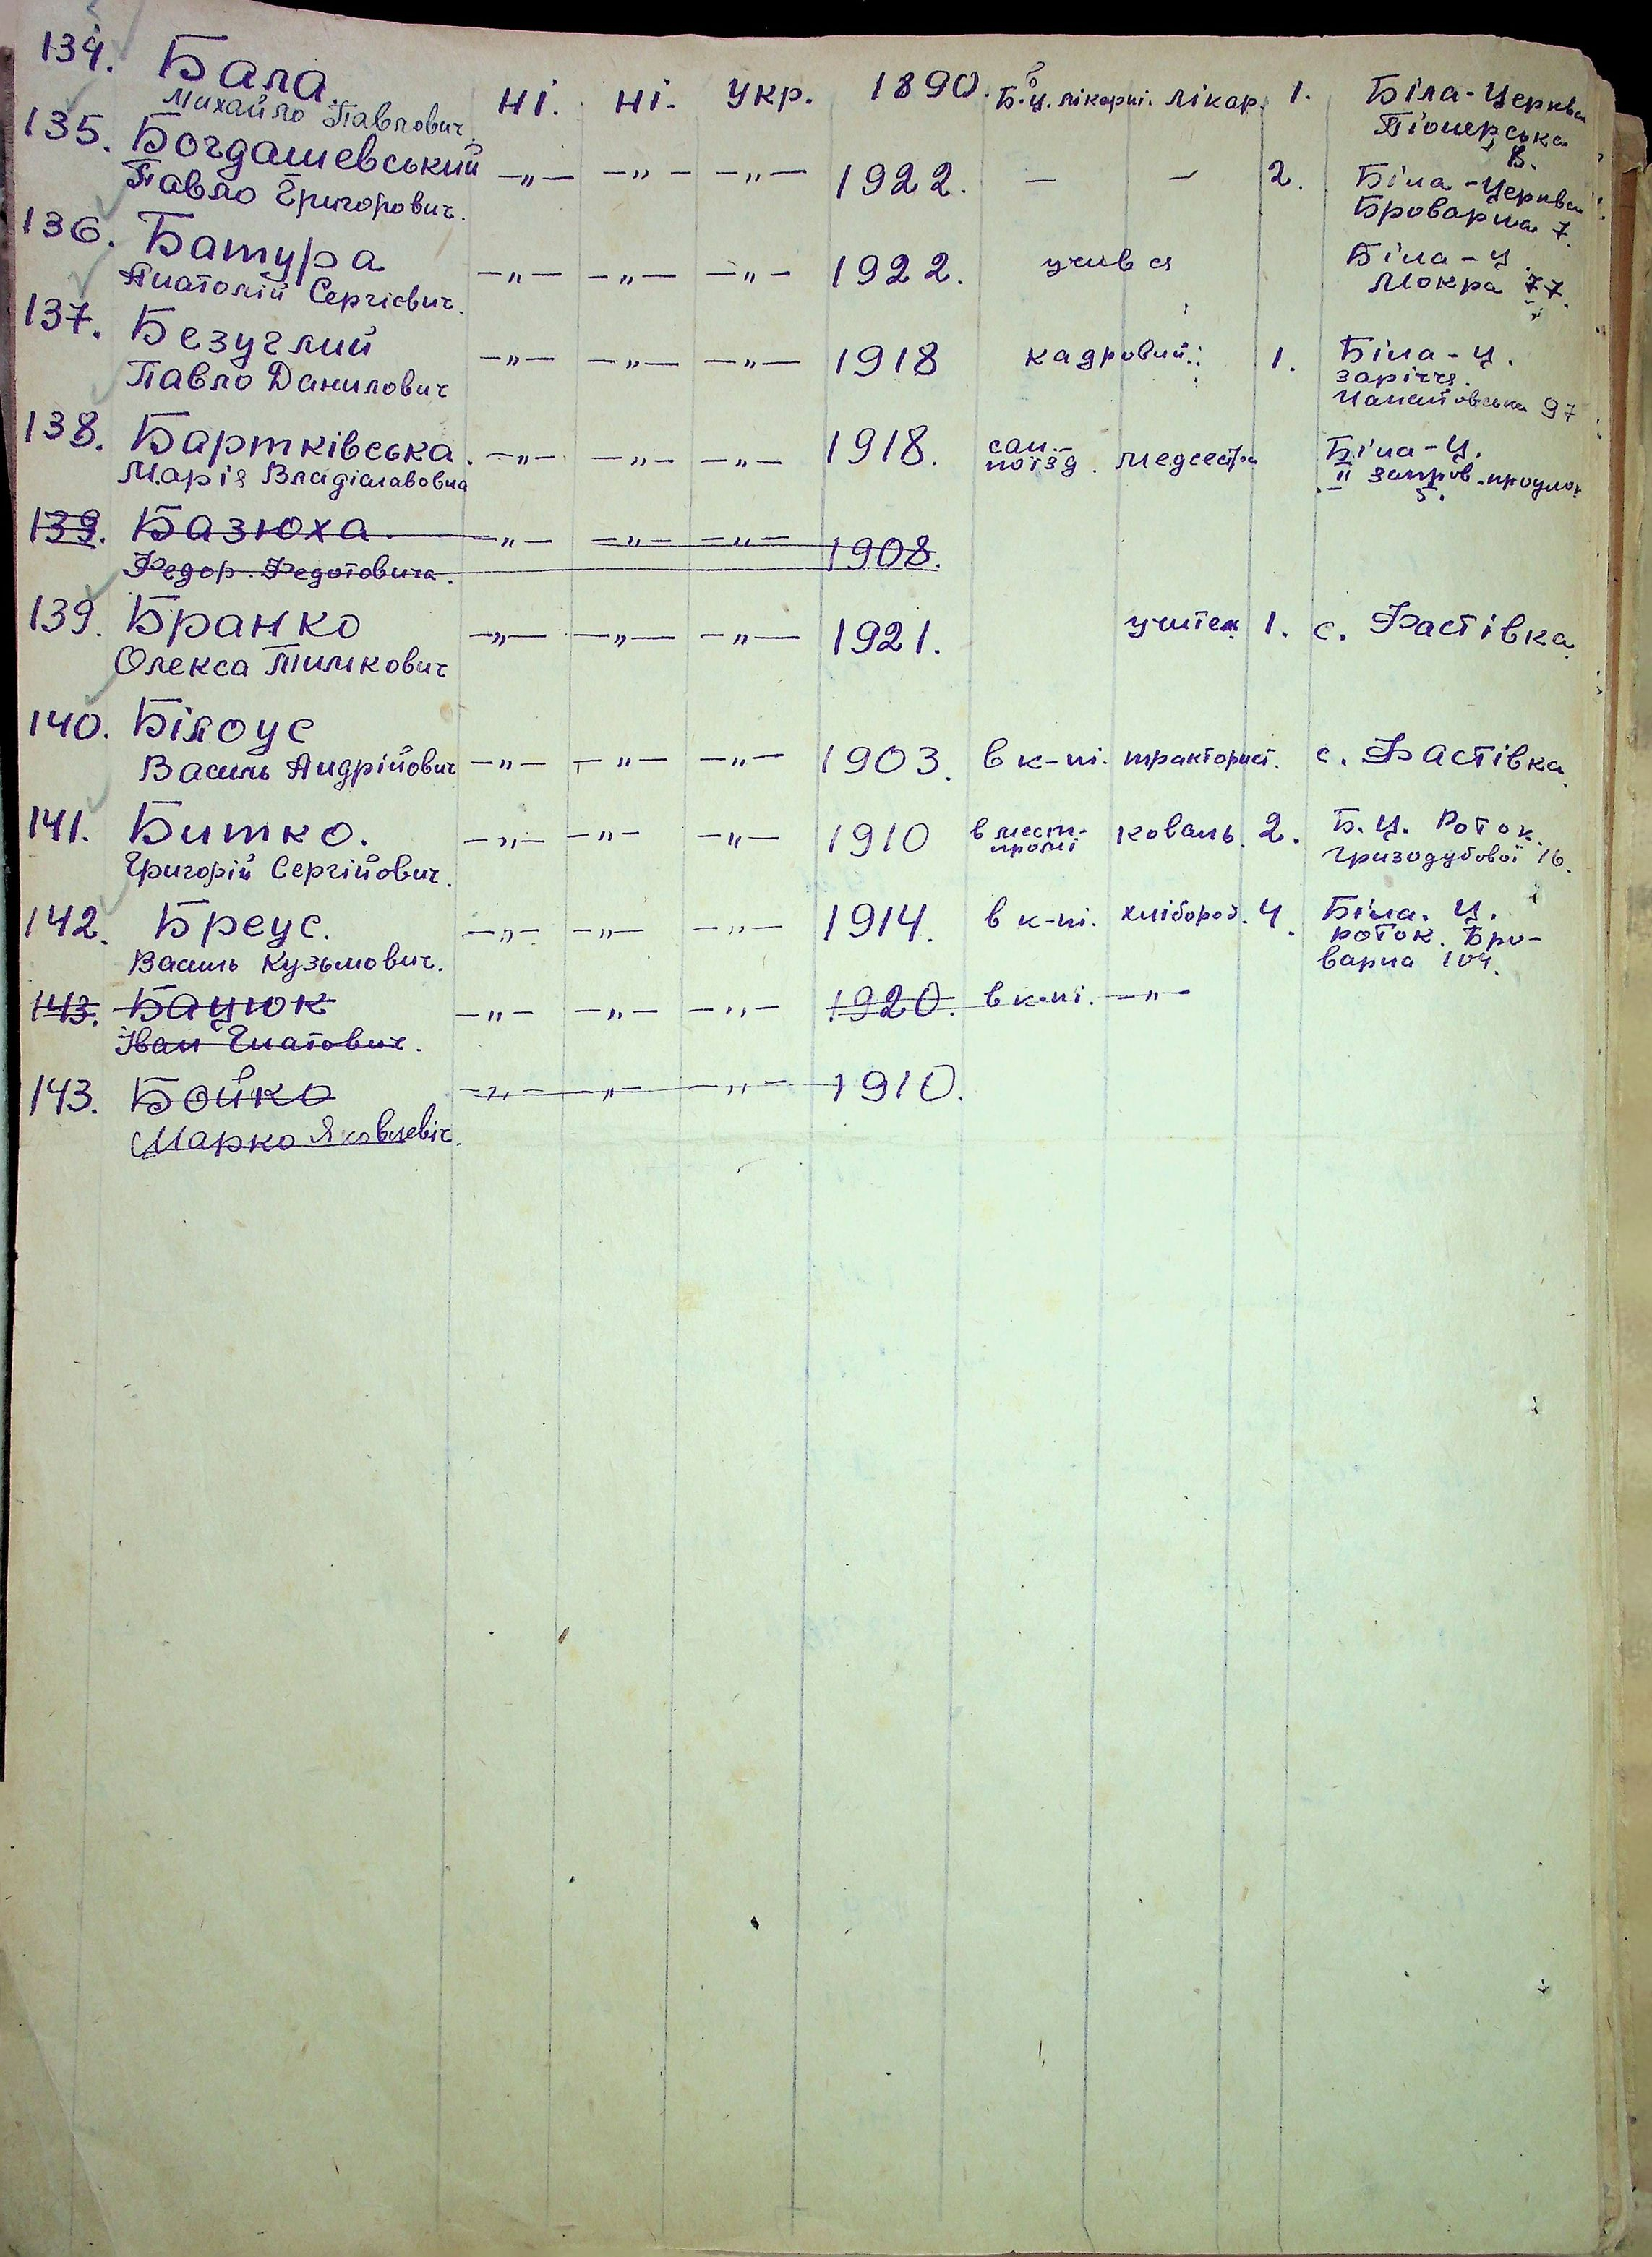 134. Бала ні. ні. укр. 1890. Б.ц. лікарні. лікар. 1. Біла-Церква
Михайло Павлович Піонерська
8.
135. Богдашевський —„— —„— —„— 1922. — — 2. Біла-Церква
Павло Григорович. Броварна 7.
136. Батура —„— —„— —„— 1922. учився Біла-Ц.
Анатолій Сергієвич. Мокра 77.
137. Безуглий —„— —„— —„— 1918 кадровий. 1. Біла-Ц.
Павло Данилович заріччя.
97
138. Бартківська. —„— —„— —„— 1918. сан. поїзд. медсестра Біла-Ц.
Марія Владіславовна II запров. проулок
5.
139. Базюха —„— —„— —„— 1908.
Федор Федотовича.
139. Бранко —„— —„— —„— 1921. учитель 1. с. Фастівка
Олекса Тимкович
140. Білоус
Василь Андрійович —„— —„— —„— 1903. в к-пі. тракторист. с. Фастівка
141. Битко. —„— —„— —„— 1910 в мест-промі коваль. 2. Б.Ц. Роток.
Григорій Сергійович. Гризодубової 16.
142. Бреус. —„— —„— —„— 1914. в к-пі. хлібороб. 4. Біла. Ц.
Василь Кузьмович. роток. Бро-
варна 104.
143. Бацюк —„— —„— —„— 1920. в к-пі. —„—
Іван Гнатович.
143. Бойко —„— —„— —„— 1910.
Марко Яковлевіч.